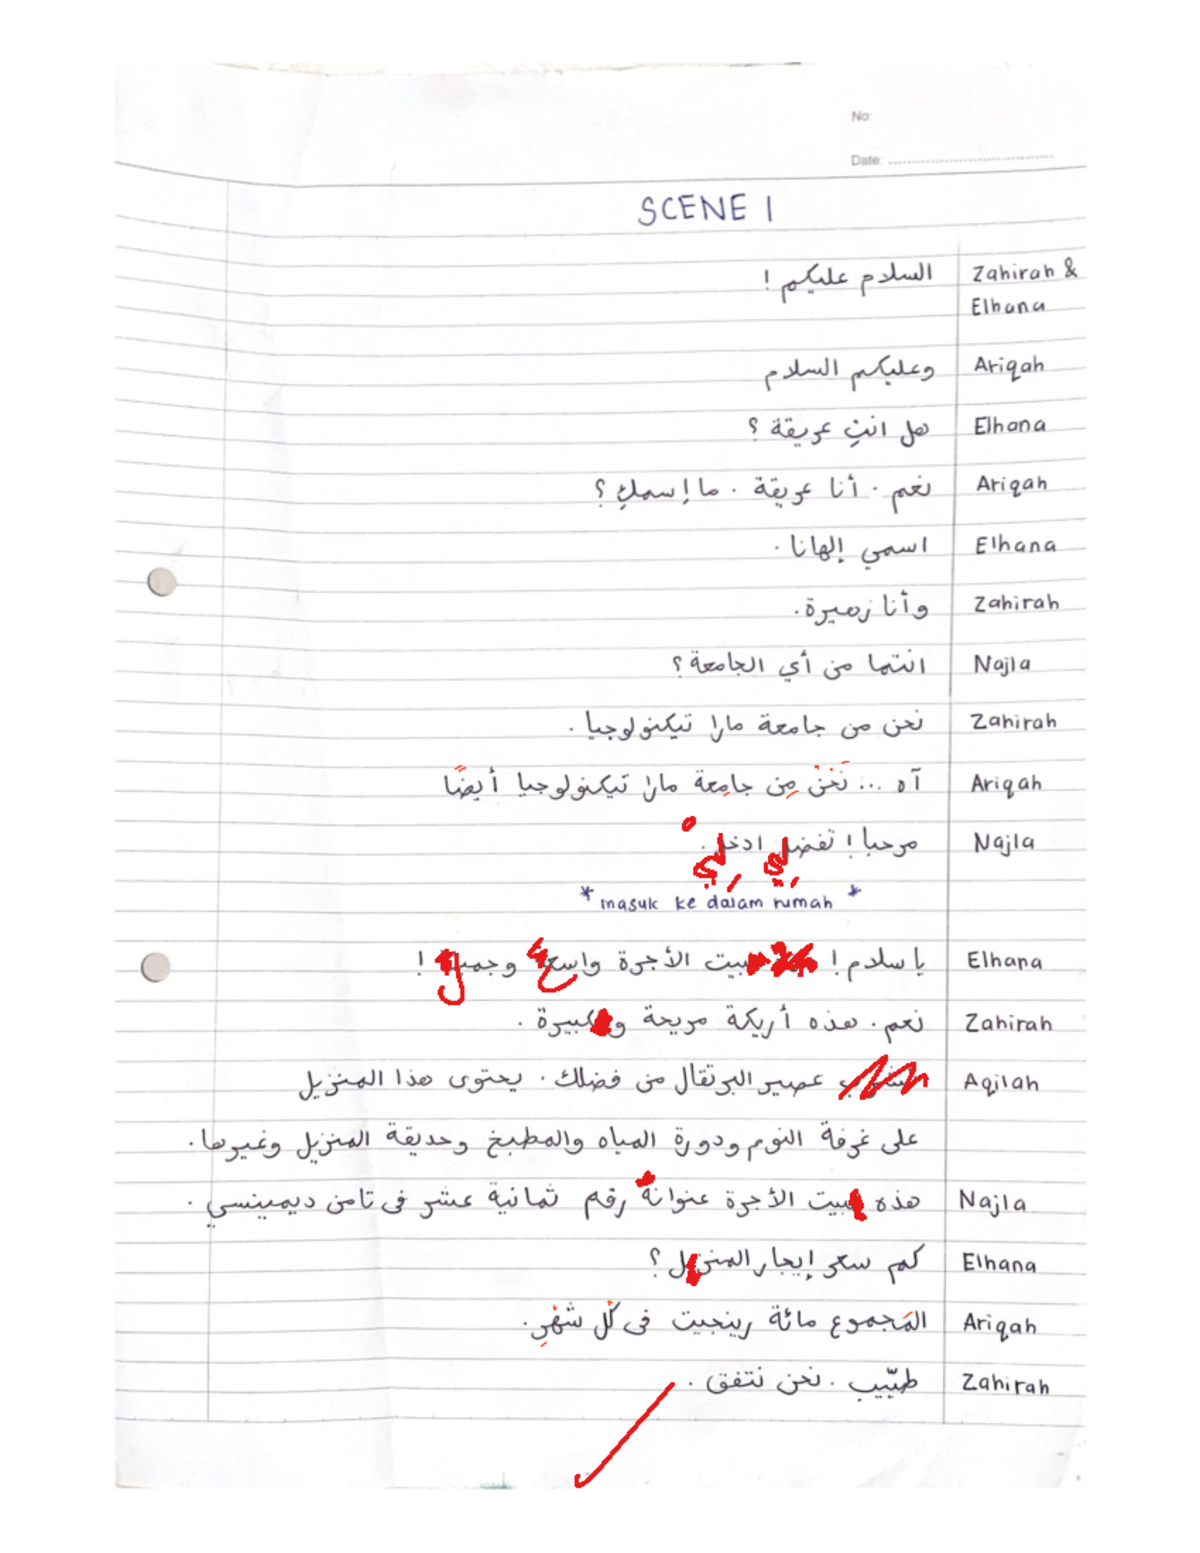 No:
Date:
SCENE 1
Zahirah & السلام عليكم !
Elhana
Ariqah وعليكم السلام
Elhana هل انتِ عريقة ؟
Ariqah نعم . أنا عريقة . ما إسمكِ ؟
Elhana اسمي إلهانا .
Zahirah وأنا زهيرة .
Najla انتما من أي الجامعة ؟
Zahirah نحن من جامعة مارا تيكنولوجيا .
Ariqah آه ... نَحْنُ مِن جامِعة مارا تيكنولوجيا أيضًا
Najla مرحبا ! تفضلي ادخلي .
* masuk ke dalam rumah *
Elhana يا سلام ! بيت الأجرة واسع وجميل !
Zahirah نعم . هذه أريكة مريحة وكبيرة .
Aqilah عصير البرتقال من فضلك . يحتوى هذا المنزيل
على غرفة النوم ودورة المياه والمطبخ وحديقة المنزيل وغيرها .
Najla هذه بيت الأجرة عنوانه رقم ثمانية عشر فى تامن ديمينسي .
Elhana كم سعر إيجار المنزل ؟
Ariqah المَجموع مائة رينجيت فى كُل شَهْرِ .
Zahirah طيّب . نحن نتفق .